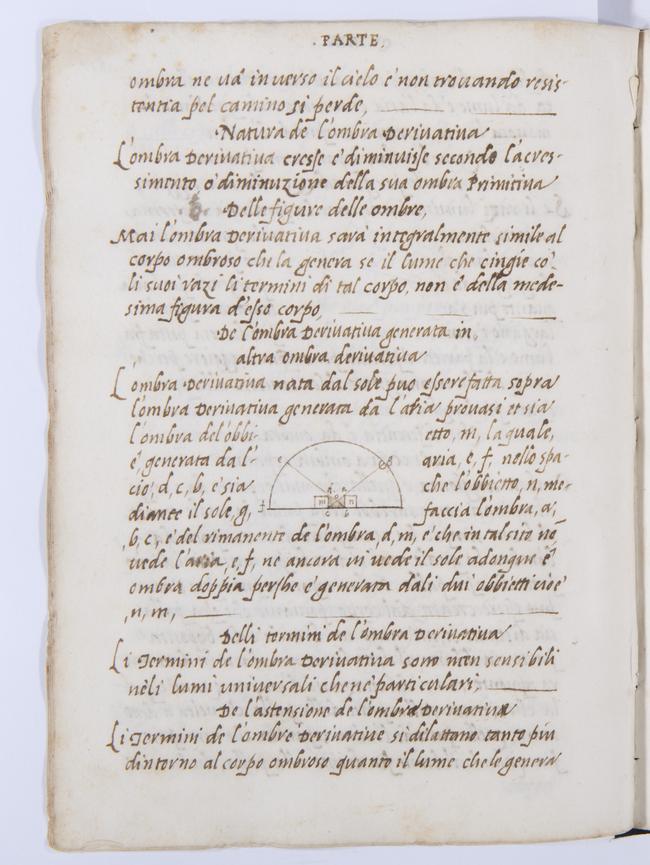 .PARTE.
ombra ne va' in verso il cielo e' non trovando resis-
tentia pel camino si perde,
Natura de l'ombra Derivativa
L'ombra Derivativa cresse e' diminuisse secondo l'acres-
simento, o' diminuzione della sua ombra Primitiva
Delle figure delle ombre,
Mai l'ombra Derivativa sara' integralmente simile al
corpo ombroso che la genera se il lume che cingie co'
li suoi razi li termini di tal corpo, non e' della mede-
sima figura d'esso corpo,
De l'ombra Derivativa generata in,
altra ombra derivativa
L'ombra Derivativa nata dal sole puo essere fatta sopra
l'ombra Derivativa generata da l'aria provasi et sia
l'ombra del obbi- etto, m, la quale,
e' generata da l'- aria, e, f, nello spa-
cio, d, c, b, e' sia che l'obbietto, n, me-
diante il sole, g, faccia l'ombra, a,
e f g
d a n
m n
c b
,b, c, e' del rimanente de l'ombra, d, m, e' che in tal sito nō
vede l'aria, e, f, ne ancora vi vede il sole adonque e'
ombra doppia perche e' generata dali dui obbietti cioe'
,n, m,
Delli termini de l'ombra Derivativa
Li Termini de l'ombra Derivativa sono men sensibili
nèli lumi universali che ne' particulari,
De l'astensione de l'ombra Derivativa
Li Termini de l'ombre Derivative si dilattano tanto più
dintorno al corpo ombroso quanto il lume che le genera